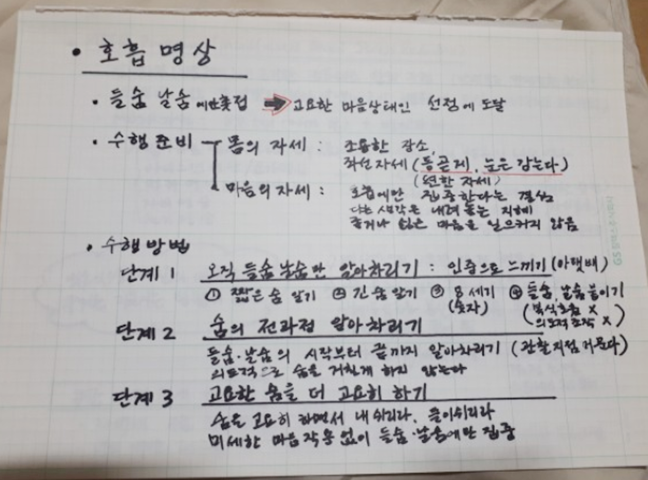 • 호흡 명상
• 들숨 날숨에만 초점 ➡ 고요한 마음상태인 선정에 도달
• 수행 준비 몸의 자세 : 조용한 장소,
좌선자세 (등곧게, 눈은 감는다)
(편한 자세)
마음의 자세 : 호흡에만 집중한다는 결심
다른 생각은 내려 놓는 지혜
좋거나 싫은 마음을 일으키지 않음
• 수행 방법
단계 1 오직 들숨날숨만 알아차리기 : 인중으로 느끼기 (아랫배)
① 짧은 숨 알기 ② 긴 숨 알기 ③ 8 세기 ④ 들숨, 날숨 붙이기
(숫자) (복식호흡 X
의도적 조작 X)
단계 2 숨의 전과정 알아차리기
들숨·날숨의 시작부터 끝까지 알아차리기 (관찰지점 머문다)
의도적으로 숨을 거칠게 하지 않는다
단계 3 고요한 숨을 더 고요히 하기
숨을 고요히 하면서 내쉬리라, 들이쉬리라
미세한 마음작용 없이 들숨·날숨에만 집중